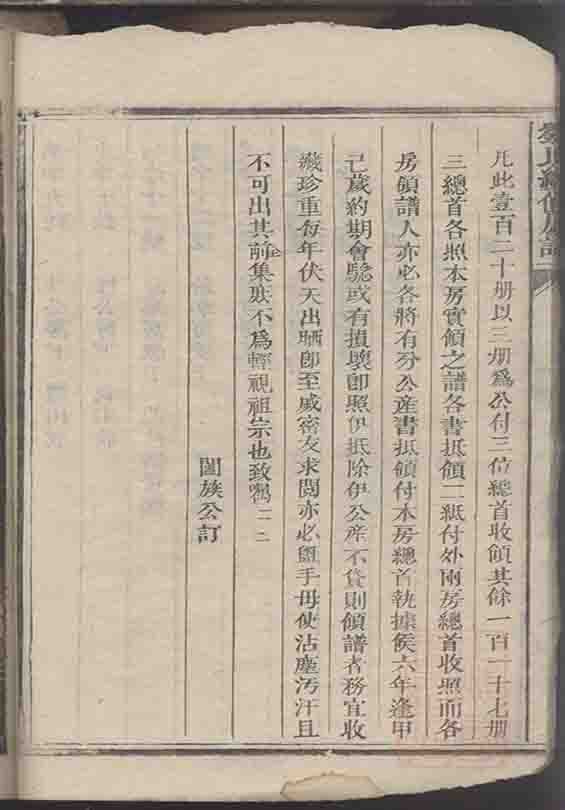 凡此壹百二十册以三册爲公付三位總首收領其餘一百一十七册
三總首各照本房實領之譜各書抵領二紙付外兩房總首收照而各
房領譜人亦必各將有分公產書抵領付本房總首執據候六年逢甲
己歲約期會驗或有損壞卽照伊抵除伊公產不貸則領譜者務宜收
藏珍重每年伏天出晒卽至戚密友求閱亦必盥手毋使沾塵汚汗且
不可出其前集瞇不爲輕視祖宗也致囑二二
闔族公訂